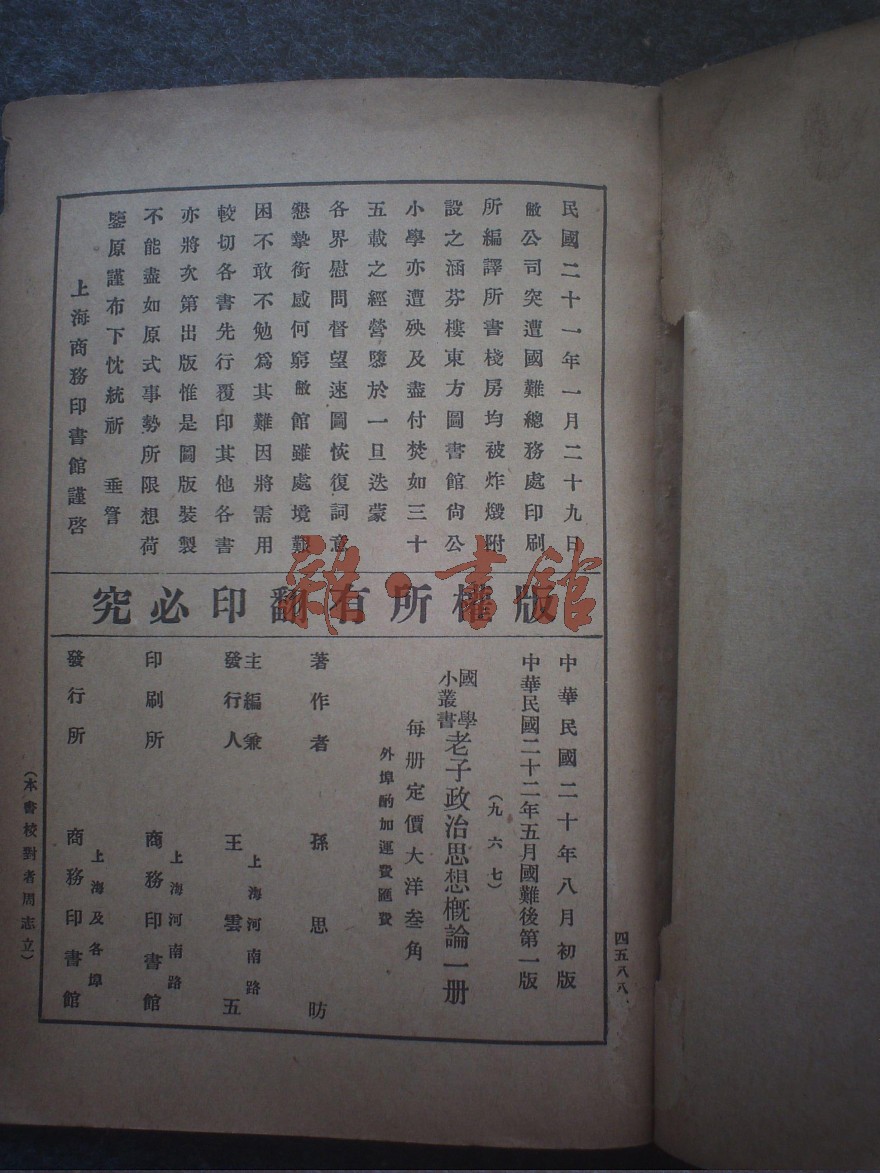 民國二十一年一月二十九日
敝公司突遭國難總務處印刷
所編譯所書棧房均被炸燬附
設之涵芬樓東方圖書館尙公
小學亦遭殃及盡付焚如三十
五載之經營隳於一旦迭蒙
各界慰問督望速圖恢復詞意
懇摯銜感何窮敝館雖處境艱
困不敢不勉爲其難因將需用
較切各書先行覆印其他各書
亦將次第出版惟是圖版裝製
不能盡如原式事勢所限想荷
鑒原謹布下忱統祈 垂詧
上海商務印書館謹啓
版權所有翻印必究
四五八八
中華民國二十年八月初版
中華民國二十二年五月國難後第一版
（九六七）
國學小叢書 老子政治思想槪論一册
每册定價大洋叁角
外埠酌加運費匯費
著作者 孫思昉
主編兼發行人 王雲五
上海河南路
印刷所 商務印書館
上海河南路
發行所 商務印書館
上海及各埠
（本書校對者周志立）
雜·書館